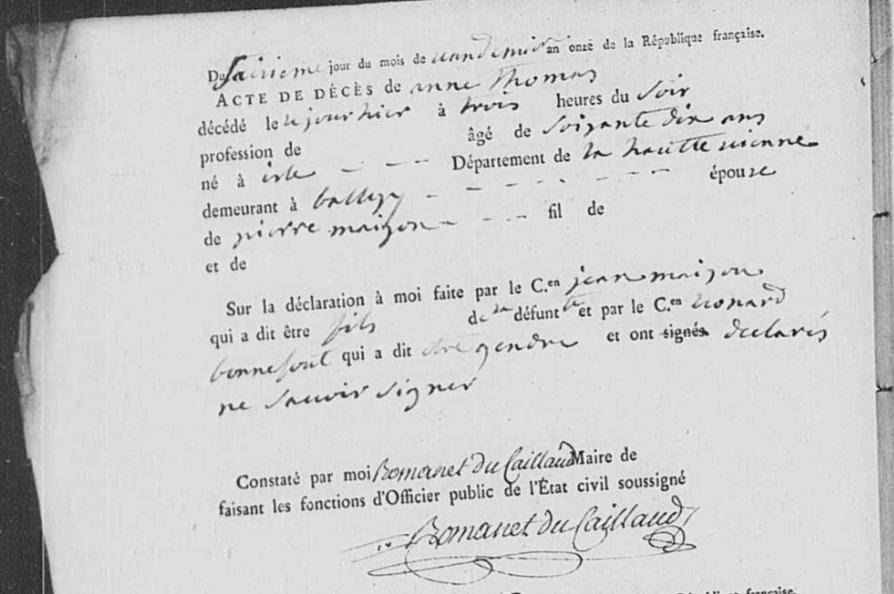 Du Saisieme jour du mois de vandemier an onze de la République française.
ACTE DE DÉCÈS de anne Thomas
décédé le jour hier à trois heures du Soir
profession de âgé de Soixante dix ans
né à isle Département de la hautte vienne
demeurant à épouze
de pierre maizon fil de
et de
Sur la déclaration à moi faite par le C.en jean maizon
qui a dit être fils de la défuntte et par le C.en léonard
bonnefont qui a dit etre gendre et ont signés declarés
ne Savoir Signer
Constaté par moi Romanet du Caillaud Maire de
faisant les fonctions d'Officier public de l'État civil soussigné
Romanet du Caillaud
République française.